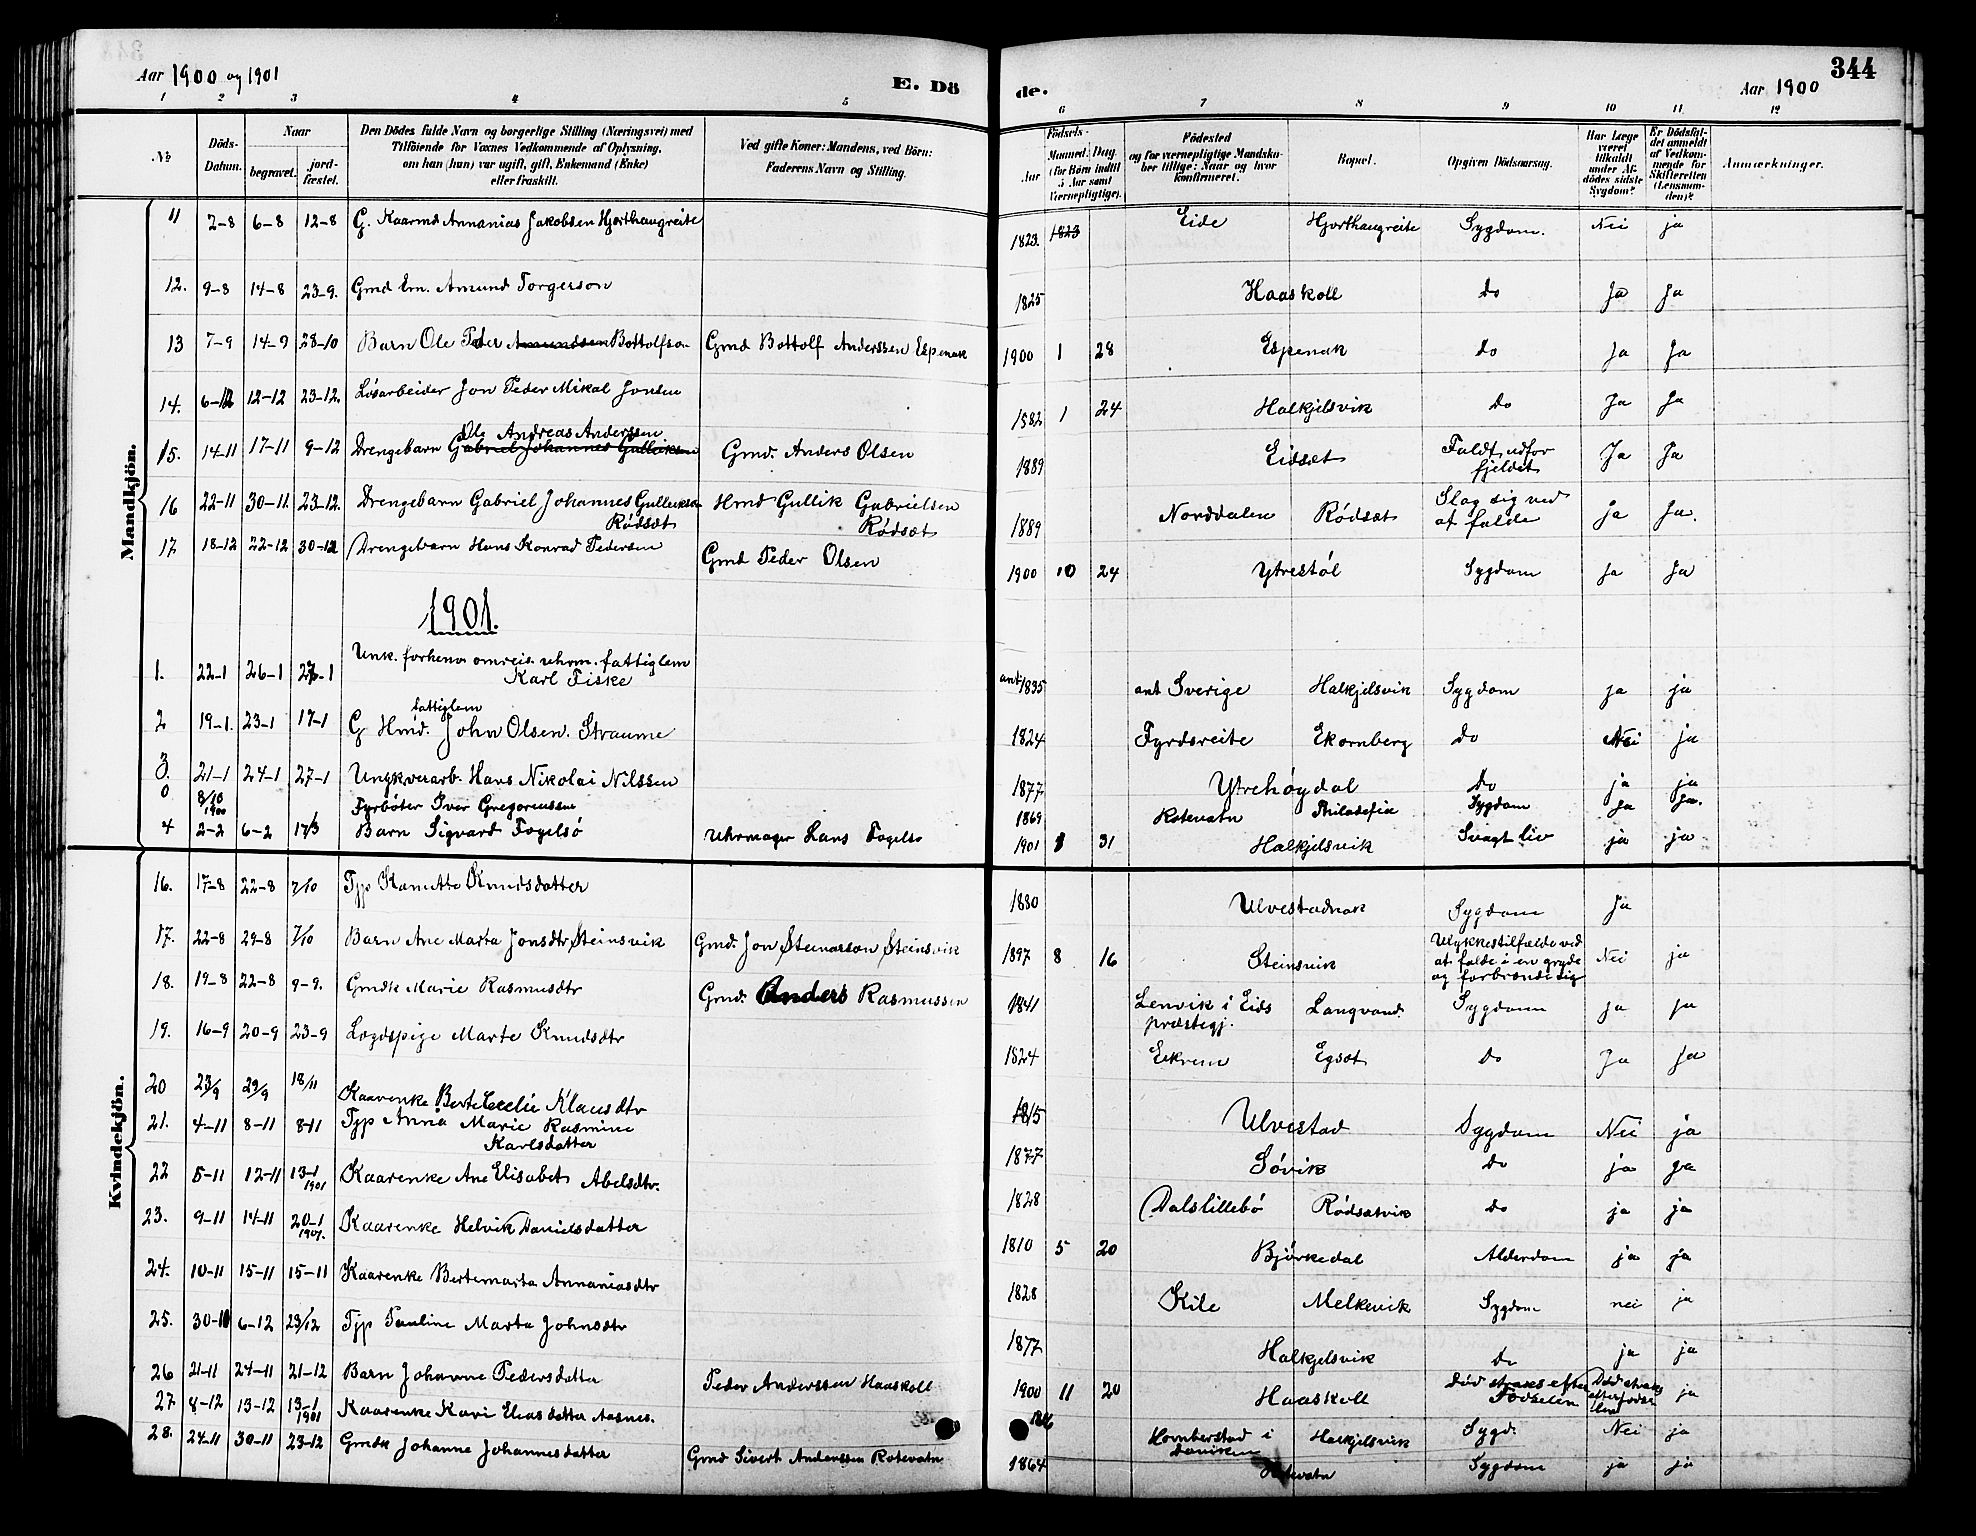 344
Aar 1900 og 1901
E. Dö
de.
Aar 1900
1 2 3 4 5 6 7 8 9 10 11 12
№
Döds-Datum.
Naar
begravet.
jord-fæstet.
Den Dödes fulde Navn og borgerlige Stilling (Næringsvei) med
Tilföiende for Voxnes Vedkommende af Oplysning,
om han (hun) var ugift, gift, Enkemand (Enke)
eller fraskilt.
Ved gifte Koner: Mandens, ved Börn:
Faderens Navn og Stilling.
Födsels-
Aar
Maaned. Dag.
(for Börn indtil 5 Aar samt Værnepligtige).
Födested
og for værnepligtige Mandsku-
ber tillige: Naar og hvor
konfirmeret.
Bopæl.
Opgiven Dödsaarsag.
Har Læge været tilkaldt under Af-dödes sidste Sygdom?
Er Dödsfal-det anmeldt af Vedkom-mende for Skifteretten (Lensman-den)?
Anmærkninger.
Mandkjön.
11 2-8 6-8 12-8 G. Kaarmd Annanias Jakobsen Hjorthaugreite 1823. 1823 Eide Hjorthaugreite Sygdom. Nei ja
12. 9-8 14-8 23-9. Gmd Em. Amund Torgerson 1825 Haaskoll do Ja Ja
13 7-9 14-9 28-10 Barn Ole Peder Amundsen Bottolfson Gmd Bottolf Anderssen Espenak 1900 1 28 Espenak do Ja Ja
14. 6-12 12-12 23-12. Lösarbeider Jon Peder Mikal Jonsen 1882 1 24 Halkjelsvik do Ja Ja
Ole Andreas Anderssen
15. 14-11 17-11 9-12 Drengebarn Gabriel Johannes Gulliksen Gmd. Anders Olsen 1889 Eidsæt Faldt udfor fjeldet Ja Ja
16 22-11 30-11. 23-12. Drengebarn Gabriel Johannes Gulleksen Rödsæt Hmd Gullik Gabrielsen Rödsæt 1889 Norddalen Rödsæt Slog sig ved at falde ja Ja.
17 18-12 22-12 30-12 Drengebarn Hans Konrad Pedersen Gmd Peder Olsen 1900 10 24 Ytrestöl Sygdom Ja Ja
1901.
1. 22-1 26-1 27-1 Unk. forhenv omreis. uhrm. fattiglem Karl Fiske ant 1835 ant Sverige Halkjelsvik Sygdom ja ja
fattiglem
2 19-1. 23-1 17-1 G Hmd. John Olsen. Straume 1824 Fyrdsreite Ekornberg do Nei ja
3. 21-1 24-1 27-1 Ungkverarb. Hans Nikolai Nilssen 1877 Ytrehöydal do ja ja
0 8/10 1900 Fyrböter Iver Gregoriussen 1869 Rotevatn Philadefia Sygdom Ja Ja.
4 2-2 6-2 17/3 Barn Sigvard Fogelsö Uhrmager Lars Fogelsö 1901 1 31 Halkjelsvik Svagt liv ja ja
Kvindekjön.
16. 17-8 22-8 7/10 Tjp Kanutte Knudsdatter 1880 Ulvestadnak Sygdom Ja
17. 22-8 29-8 7/10 Barn Ane Marta Jonsdtr Steinsvik Gmd. Jon Steinarson Steinsvik 1897 8 16 Steinsvik Ulykkestilfælde ved at falde i en gryde og forbrænde sig Nei ja
18. 19-8 22-8 9-9. Gmdk Marie Rasmusdtr Gmd. Anders Rasmussen 1841 Lenvik i Eids præstegj. Langvand. Sygdom ja ja
19. 16-9 20-9 23-9 Lægdspige Marte Knudsdtr 1824 Eikrem Egsæt do Ja Ja
20 23/9 29/9 18/11 Kaarenke Berte Cecelie Klausdtr 1815 Ulvestad Sygdom Nei ja
21. 4-11 8-11 8-11 Tjp Anna Marie Rasmine Karlsdatter 1877 Sövik do ja ja
22 5-11 12-11 13-1 1901 Kaarenke Ane Elisabet Abelsdtr. 1828 Dalslillebö Rödsætvik do ja ja
23. 9-11 14-11 20-1 1901. Kaarenke Helvik Danielsdatter 1810 5 20 Björkedal Alderdom ja ja
24. 10-11 15-11 15-11 Kaarenke Bertemarta Annaniasdtr 1828 Kile Melkevik Sygdom nei ja
25. 30-11 6-12 23/12 Tjp Pauline Marta Johnsdtr 1877 Halkjelsvik do ja ja
26 21-11 24-11 21-12 Barn Johanne Pedersdatter Peder Anderssen Haaskoll 1900 11 20 Haaskoll Död straks efter Födselen Död straks efter födselen ja
27. 8-12 13-12 13-1 1901 Kaarenke Kari Eliasdatter Aasnes. Hornberstad i Daviken Halkjelsvik Sygd. Nei ja
28. 24-11 30-11 23-12 Gmdk Johanne Johannesdatter Gmd Sivert Anderssen Rotevatn 1864 Rotevatn Sygdom ja ja